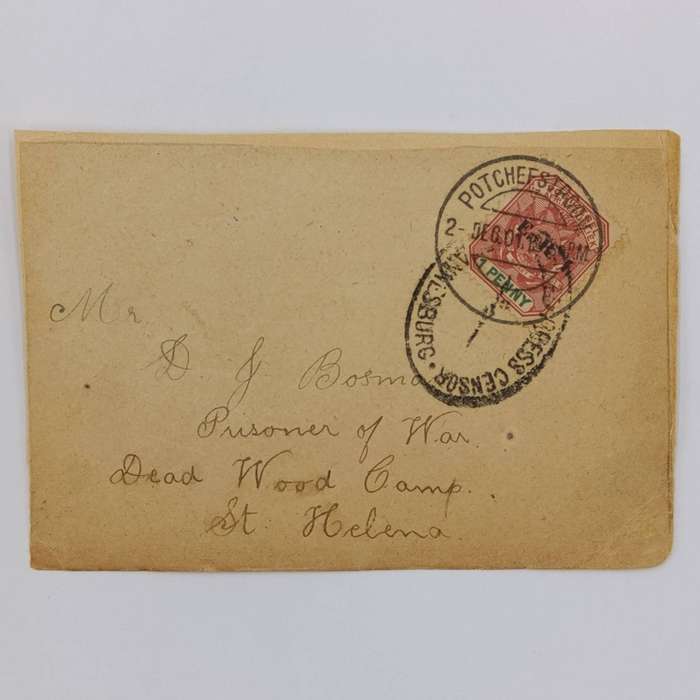 POTCHEFSTROOM
2- DEC.01. PM
1 PENNY
PRESS CENSOR · JOHANNESBURG ·
Mr
D J Bosma
Prisoner of War.
Dead Wood Camp.
St. Helena.